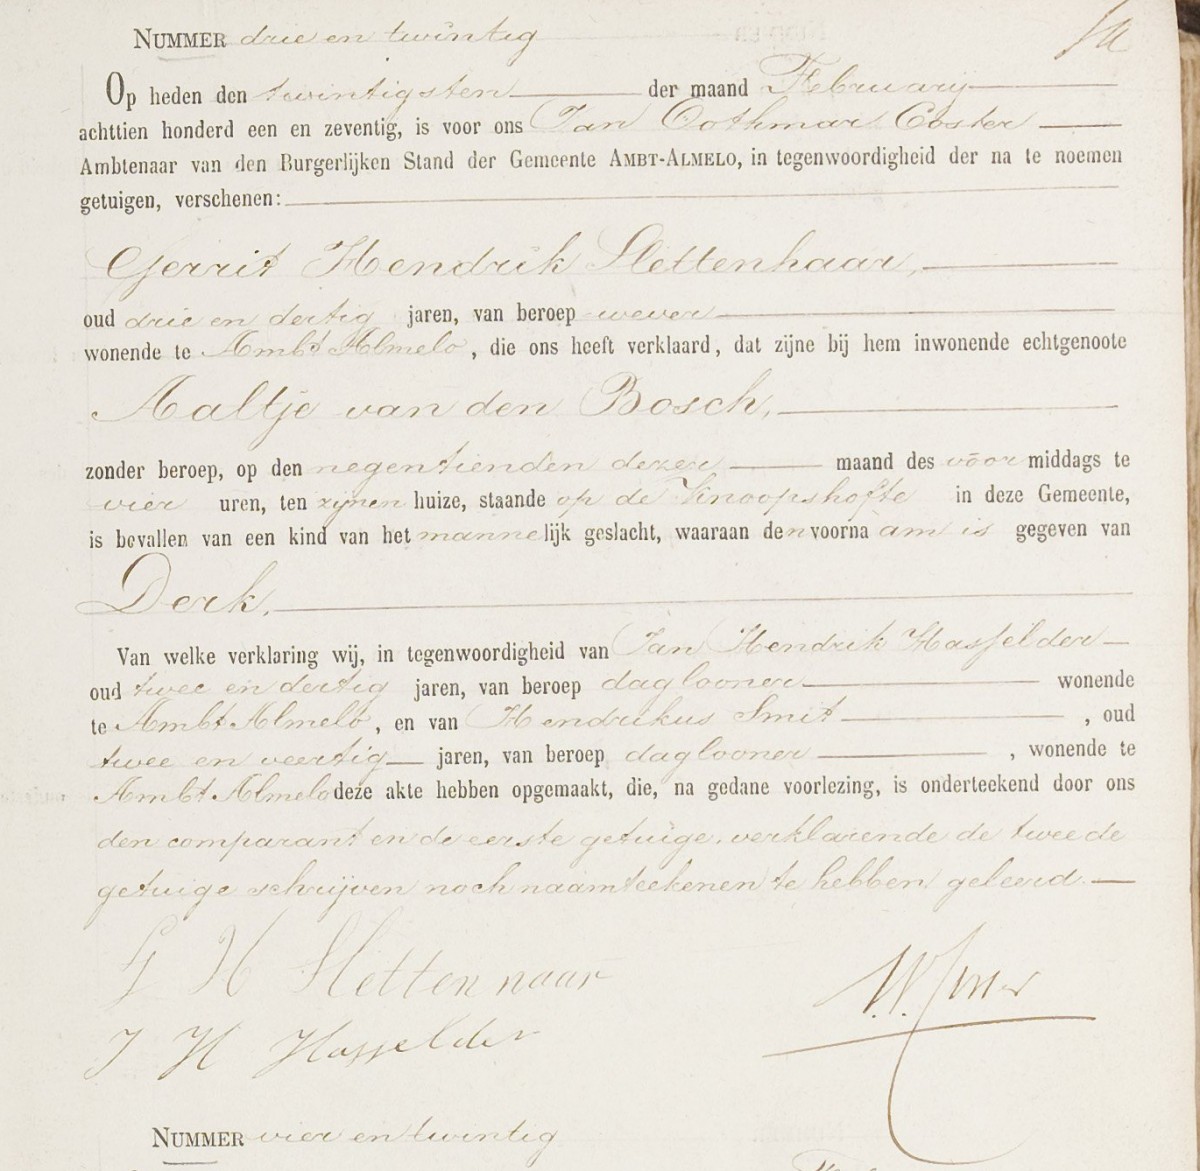 NUMMER drie en twintig
Op heden den twintigsten der maand Februarij
achttien honderd een en zeventig, is voor ons Jan Oothmar Coster
Ambtenaar van den Burgerlijken Stand der Gemeente AMBT-ALMELO, in tegenwoordigheid der na te noemen
getuigen, verschenen:
Gerrit Hendrik Slettenhaar,
oud drie en dertig jaren, van beroep wever
wonende te Ambt Almelo, die ons heeft verklaard, dat zijne bij hem inwonende echtgenoote
Aaltje van den Bosch,
zonder beroep, op den negentienden dezer maand des vóórmiddags te
vier uren, ten zijnen huize, staande op de Knoopshofte in deze Gemeente,
is bevallen van een kind van het mannelijk geslacht, waaraan den voornaam is gegeven van
Derk.
Van welke verklaring wij, in tegenwoordigheid van Jan Hendrik Hasselder
oud twee en dertig jaren, van beroep daglooner wonende
te Ambt Almelo, en van Hendrikus Smit, oud
twee en veertig jaren, van beroep daglooner, wonende te
Ambt Almelo deze akte hebben opgemaakt, die, na gedane voorlezing, is onderteekend door ons
den comparant en de eerste getuige, verklarende de tweede
getuige schrijven noch naamteekenen te hebben geleerd.
G H Slettenhaar
J H Hasselder
NUMMER vier en twintig